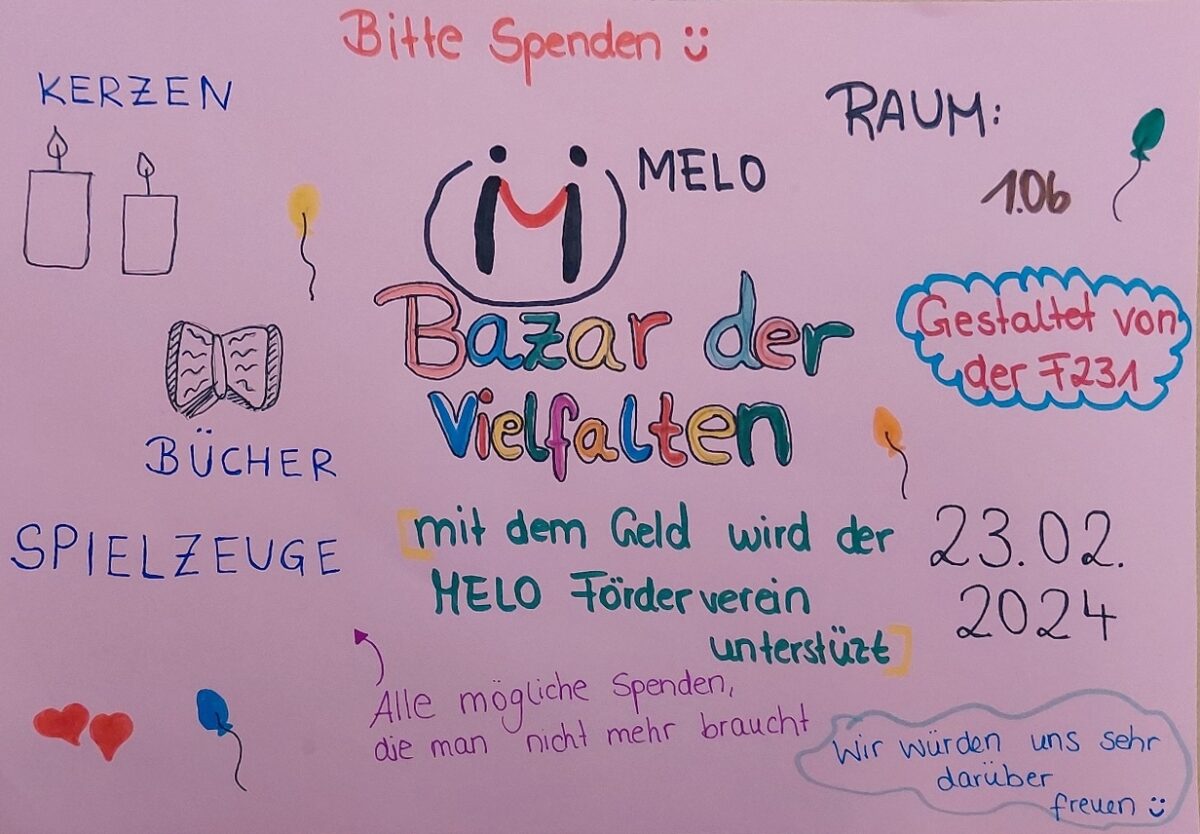 Bitte Spenden
KERZEN
RAUM:
1.06
MELO
Bazar der
Vielfalten
Gestaltet von
der F231
BÜCHER
SPIELZEUGE
[mit dem Geld wird der
MELO Förderverein
unterstüzt]
23.02.
2024
Alle mögliche Spenden,
die man nicht mehr braucht
Wir würden uns sehr
darüber
freuen